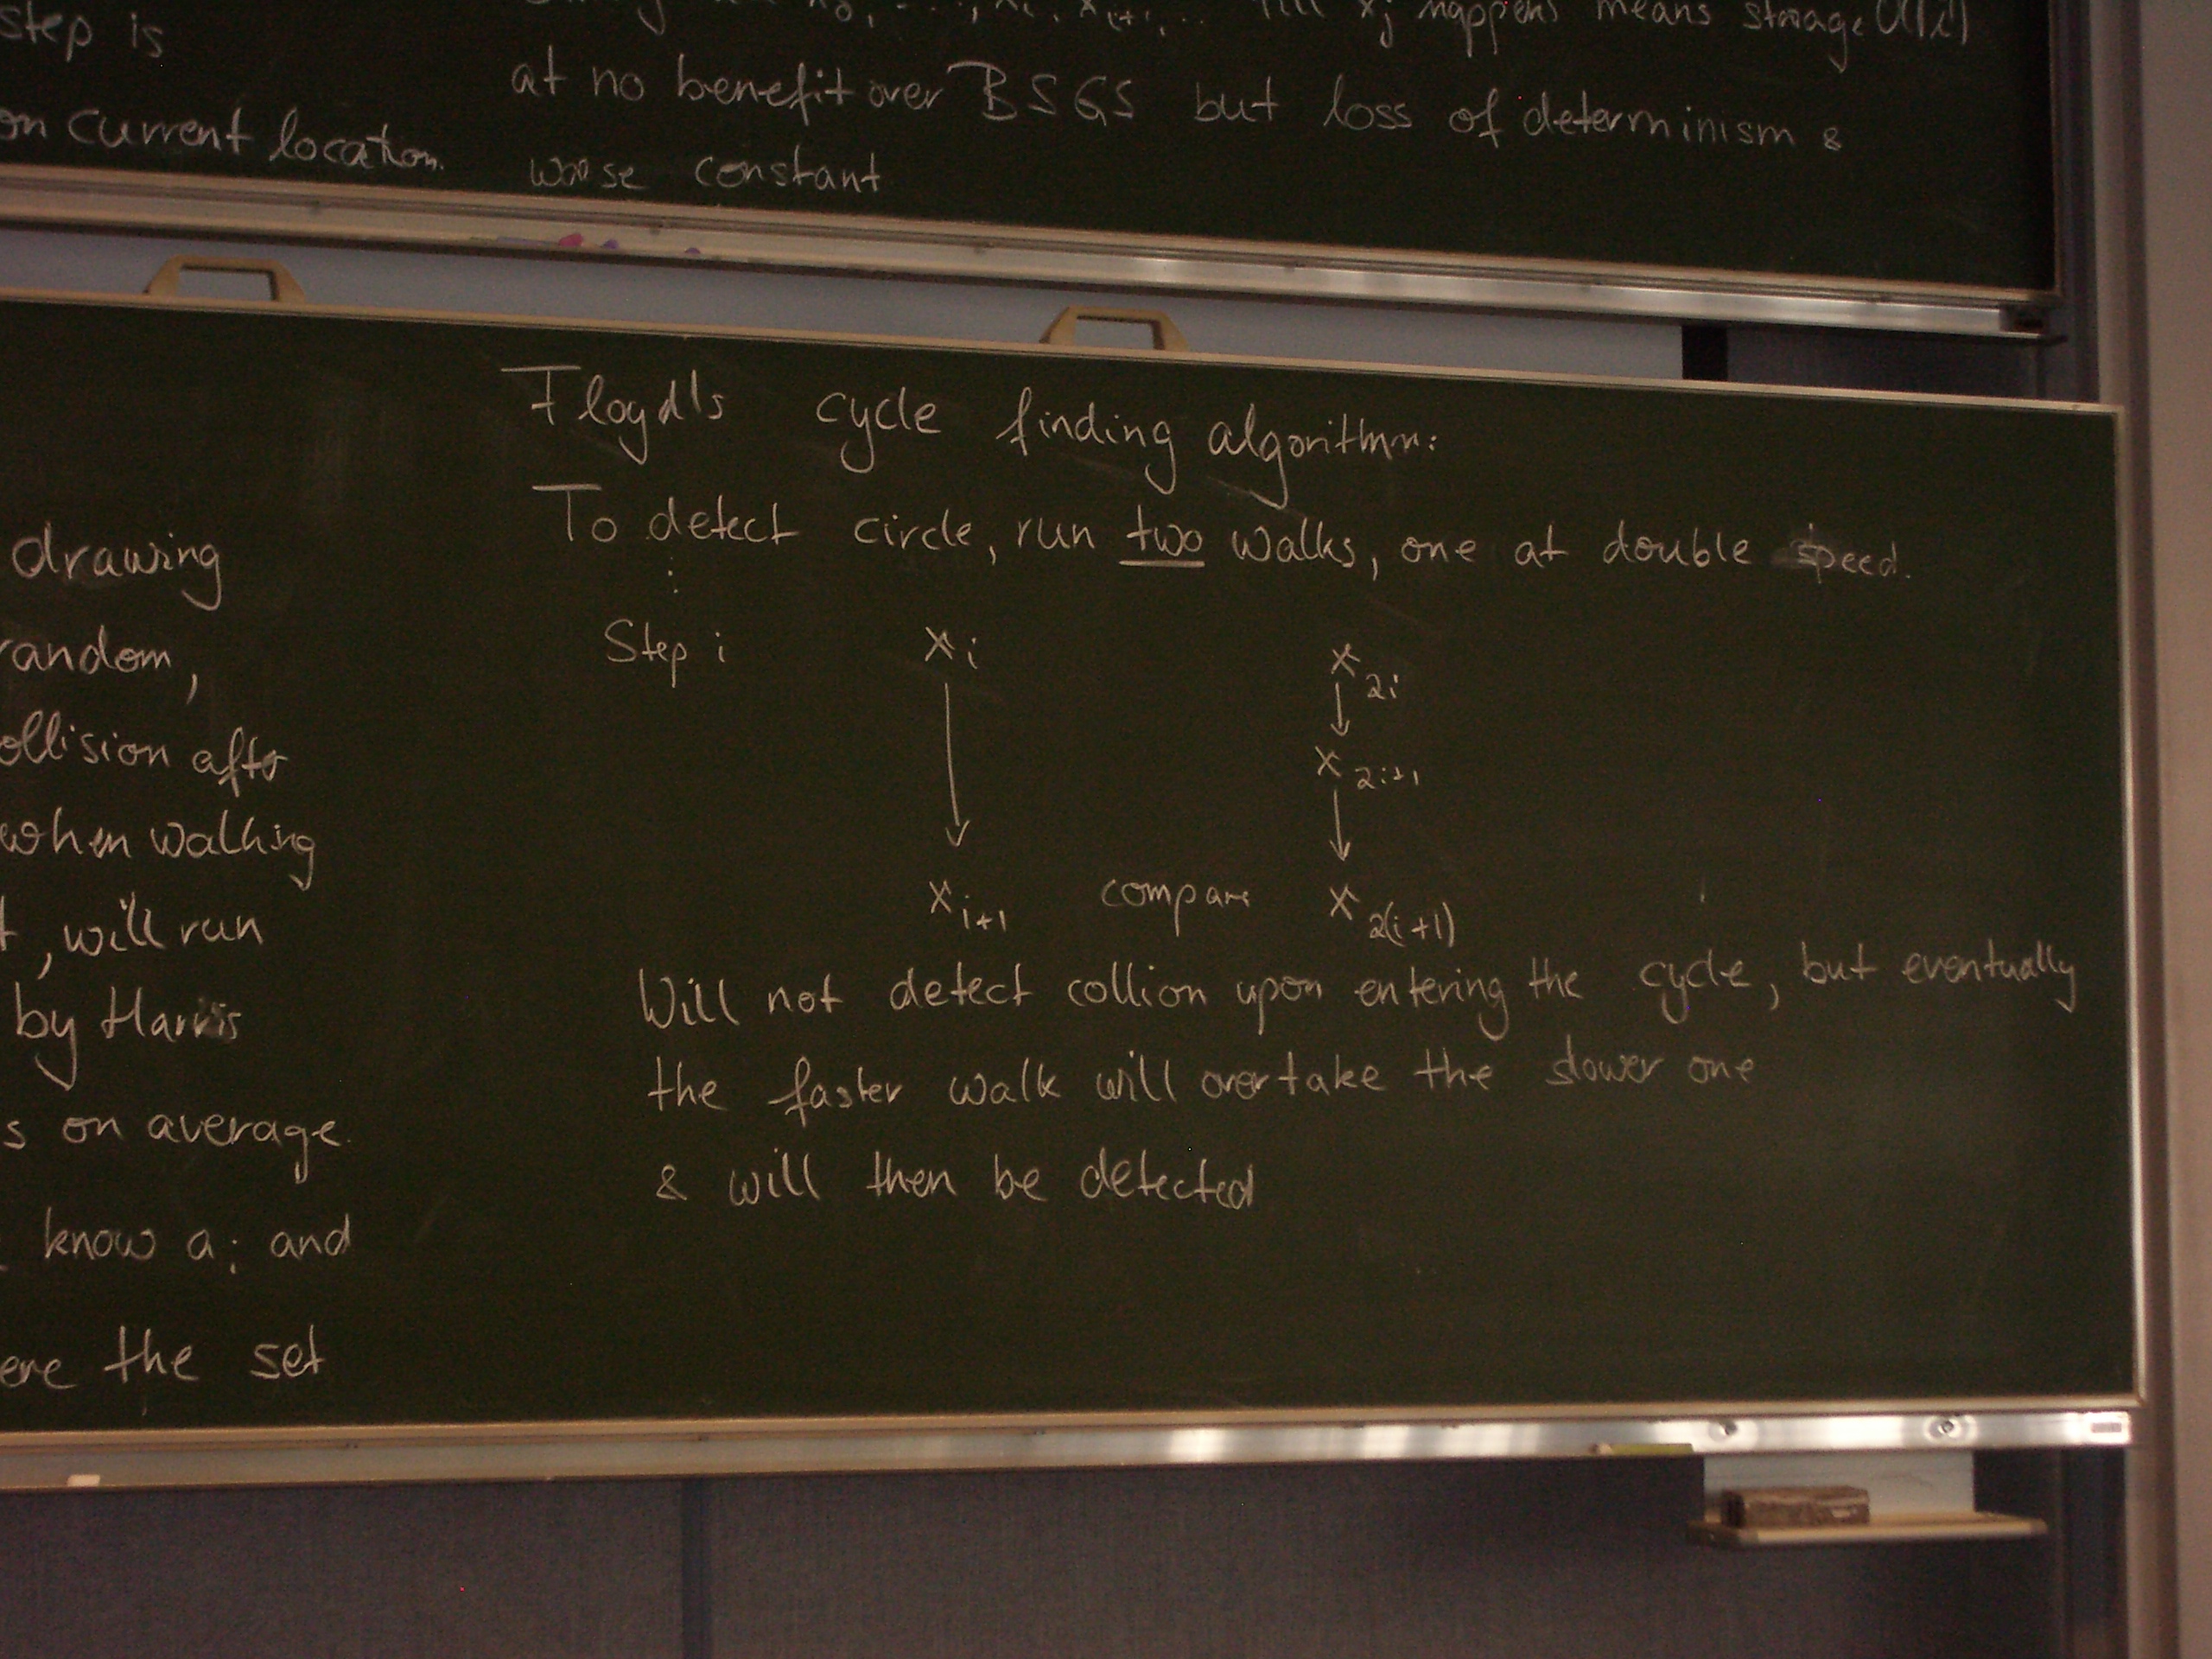 step is
on current location.
x_j happens means storage O(i)
at no benefit over BSGS but loss of determinism &
worse constant
drawing
random,
ollision after
when walking
, will run
by Harris
s on average.
know a_i and
ere the set
Floyd's cycle finding algorithm:
To detect circle, run two walks, one at double speed.
⋮
Step i x_i x_{2i}
↓ ↓
x_{2i+1}
↓
x_{i+1} compare x_{2(i+1)}
Will not detect collion upon entering the cycle, but eventually
the faster walk will overtake the slower one
& will then be detected